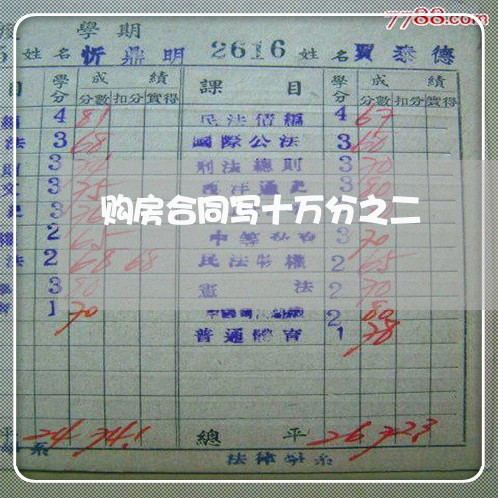 7788.com
學期
姓名 忻鼎明 2616 姓名 賈泰德
目 學分 成績 課目 學分 成績
分數 扣分 實得 分數 扣分 實得
4 81 民法債編 4 67
法 3 68 國際公法 3 60
3 刑法總則 3 70
3 75 西洋通史 3 80
购房合同写十万分之二
2 65 3 70
法 2 68 68 民法物權 2 65
3 80 憲法 2 70
1 70 2 80
普通體育 1 78
24 74.1 總平 26 72.3
系 法律學系